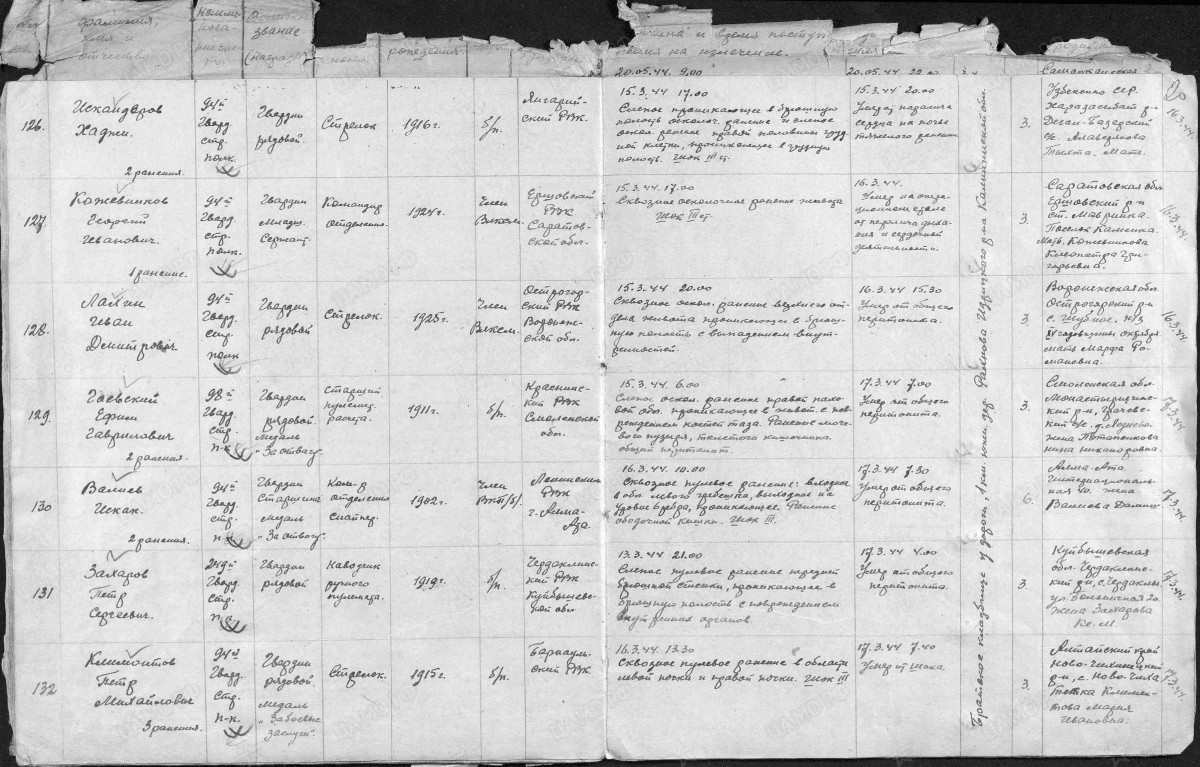 фамилия,
имя и
отчество
звание
рождения
и время поступ-
ления на излечение.
20.05.44 9.00
20.05.44
126
Искандеров
Хаджи.
2 ранения.
94й
Гвард
стр.
полк.
Гвардии
рядовой.
Стрелок
1916 г.
б/п.
Янгарий-
ский РВК.
15.3.44 17.00
Слепое проникающее в брюшную
полость осколоч. ранение и слепое
оскол. ранение правой половины груд-
ной клетки, проникающее в грудную
полость. Шок III ст.
15.3.44 20.00
Умер от паралича
сердца на почве
тяжелого ранения.
3.
Узбекско ССР.
Мать.
16.3.44
127
Кожевников
Георгий
Иванович.
1 ранение.
94й
Гвард.
стр.
полк.
Гвардии
младш.
сержант.
Командир
отделения.
1924 г.
Член
ВЛКСМ.
Ершовский
РВК
Саратов-
ской обл.
15.3.44. 17.00
Сквозное осколочное ранение живота
Шок III ст.
16.3.44.
Умер на опера-
ционном столе
от паралича дыха-
ния и сердечной
деятельности.
3
Саратовская обл
Ершовский р-н
ст. Мавринка
Поселок Каменка.
Мать Кожевникова
Клеопатра Гри-
горьевна.
16.3.44
128.
Лалин
Иван
Дмитрович.
94й
Гвард.
стр.
полк
Гвардии
рядовой
Стрелок.
1925 г.
Член
ВЛКСМ.
Острогож-
ский РВК
Воронеж-
ской обл.
15.3.44 20.00
Сквозное оскол. ранение верхнего от-
дела живота проникающее в брюш-
ную полость с выпадением внут-
ренностей.
16.3.44 15.30
Умер от общего
перитонита.
3
Воронежская обл.
Острогорский р-н
к/з
годовщины октября
мать Марфа Ро-
мановна.
16.3.44
129.
Гаевский
Ефим
Гаврилович
2 ранения.
98й
Гвард.
стр.
п-к
Гвардии
рядовой.
Медаль
"За отвагу"
Старший
пулемет.
расчета.
1911 г.
б/п.
Краснинс-
кий РВК
Смоленской
обл.
15.3.44. 6.00
Слепое оскол. ранение правой пахо-
вой обл. проникающее в живот с пов-
реждением костей таза. Ранение моче-
вого пузыря, толстого кишечника.
общий перитонит.
17.3.44 7.00
Умер от общего
перитонита.
3.
Смоленская обл.
Монастырщинс-
кий р-н,
жена Потапенкова
Нина Никаноровна.
17.3.44
130
Валиев
Искак.
2 ранения.
94й
Гвард.
стр.
п-к
Гвардии
Старшина
медаль
"За отвагу"
Ком-р
отделения
1902 г.
Член
ВКП/б/.
Ленинский
РВК
г. Алма-
Ата.
16.3.44. 10.00
Сквозное пулевое ранение: входное
в обл. левого гребешка, выходное на
уровне 6 ребра, проникающее. Ранение
ободочной кишки. Шок III.
17.3.44 7.30
Умер от общего
перитонита.
6.
Алма-Ата.
Интернациональ-
ная 40. жена
Валиева
17.3.44
131
Захаров
Петр
Сергеевич.
249й
Гвард.
стр.
п-к
Гвардии
рядовой
Наводчик
ручного
пулемета.
1919 г.
б/п
Чердаклин-
ский РВК
Куйбышевс-
кой обл
13.3.44 21.00
Слепое пулевое ранение передней
брюшной стенки, проникающее в
брюшную полость с повреждением
внутренних органов.
17.3.44 4.00
Умер от общего
перитонита.
3.
Куйбышевская
обл. Чердаклинс-
кий р-н, с. Чердаклы
ул. Больничная 20.
жена Захарова
Кс. М.
17.3.44
132
Климонтов
Петр
Михайлович
3 ранения.
94й
Гвард.
стр.
п-к.
Гвардии
рядовой.
медаль
"За боевые
заслуги".
Стрелок.
1915 г.
б/п.
Барнауль-
ский РВК
16.3.44 13.30
Сквозное пулевое ранение в области
левой почки и правой почки. Шок III
17.3.44 7.40
Умер от шока.
3
Алтайский край
р-н, с.
тетка Климен-
това Мария
Ивановна.
17.3.44
Братское кладбище у дороги, 1 км. юго-зап. дер. Калининской обл.